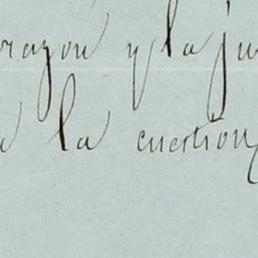 razon y la ju
la cuestion